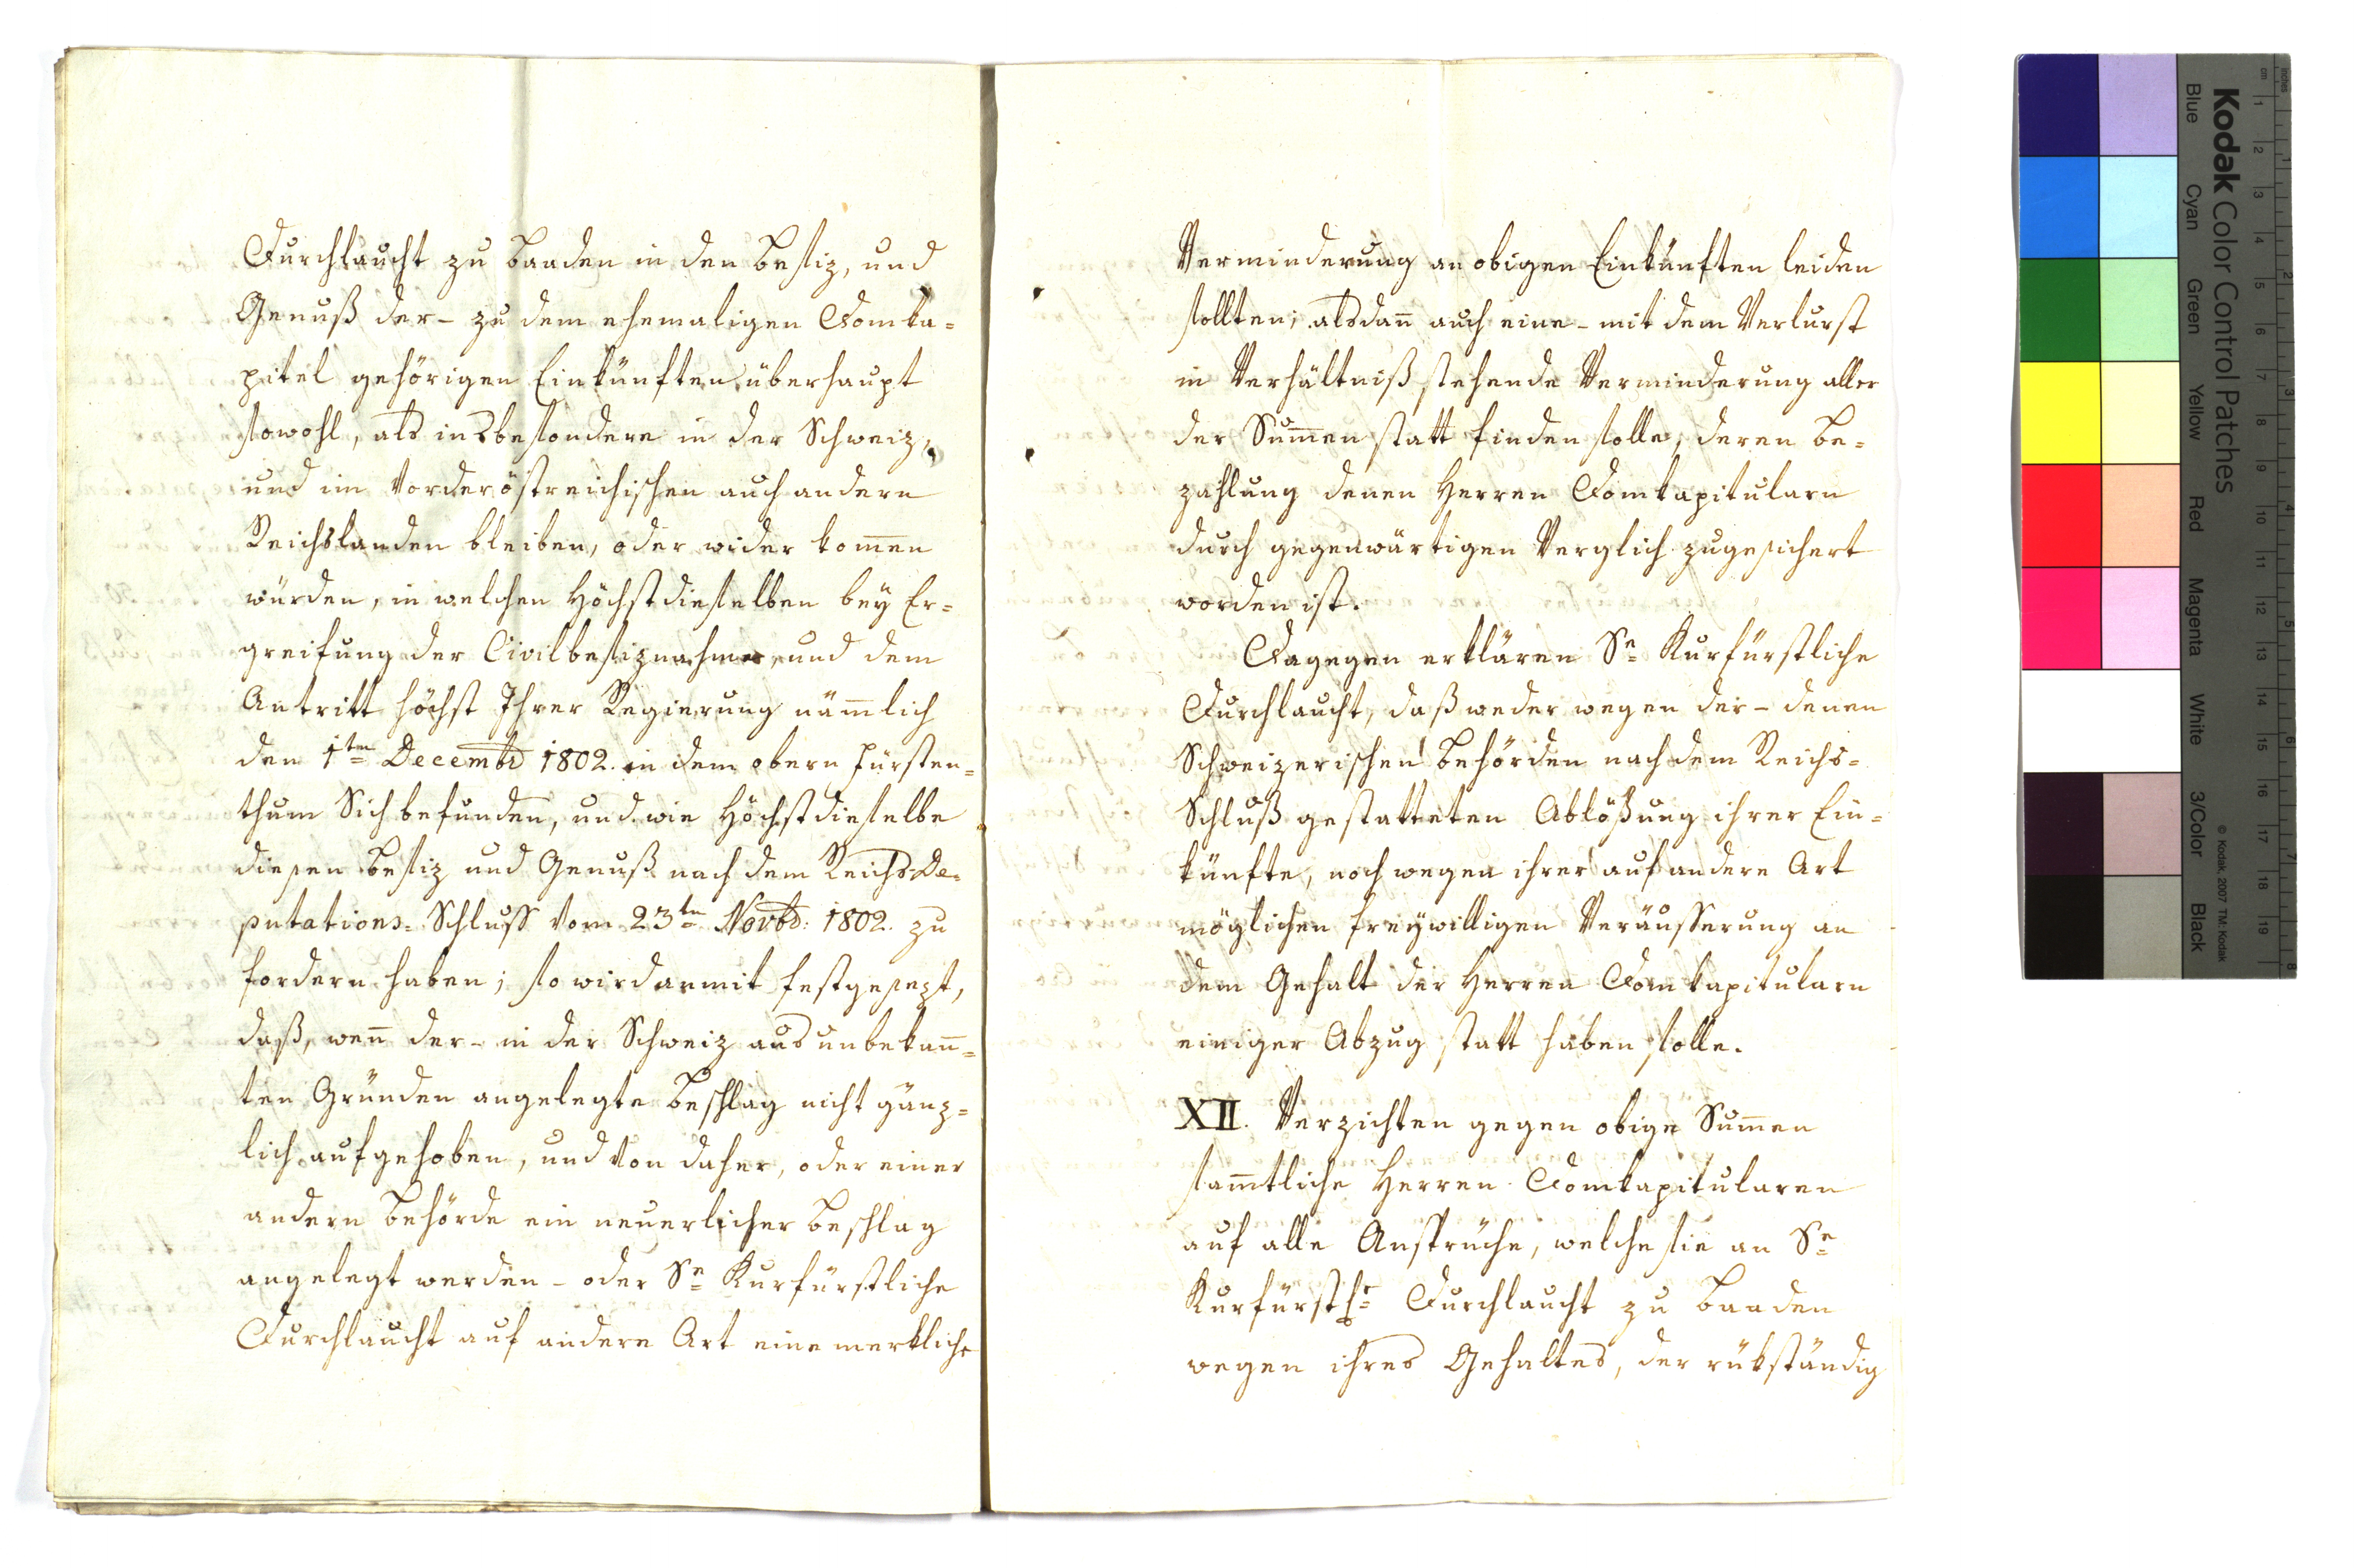 Durchlaucht zu Baaden in den Besiz, und
Genuß der - zu dem ehemaligen Domka-
pitel gehörigen Einkünften überhaupt
sowohl, als insbesondere in der Schweiz,
und im Vorderöstreichischen auch andern
Reichslanden bleiben, oder wider kom̄en
würden, in welchen Höchstdieselben bey Er-
greifung der Civilbesiznahme, und dem
Antritt höchst Ihrer Regierung näm̄lich
den 1ten Decembr 1802. in dem obern Fürsten-
thum Sich befunden, und wie Höchstdieselbe
diesen Besiz und Genuß nach dem ReichsDe-
putations-Schluss vom 23ten Novbr: 1802. zu
fordern haben; so wird anmit festgesezt,
daß, wen̄ der - in der Schweiz aus unbekan̄-
ten Gründen angelegte Beschlag nicht gänz-
lich aufgehoben, und von daher, oder einer
andern Behörde ein neuerlicher Beschlag
angelegt werden - oder Se Kurfürstliche
Durchlaucht auf andere Art eine merkliche
Verminderung an obigen Einkünften leiden
sollten; alsdan̄ auch eine - mit dem Verlurst
in Verhältniß stehende Verminderung aller
der Sum̄en statt finden solle, deren Be-
zahlung denen Herren Domkapitularn
durch gegenwärtigen Verglich zugesichert
worden ist.
Dagegen erklären Se Kurfürstliche
Durchlaucht, daß weder wegen der - denen
Schweizerischen Behörden nach dem Reichs-
Schluß gestatteten Ablößung ihrer Ein-
künfte, noch wegen ihrer auf andere Art
möglichen freywilligen Veräusserung an
dem Gehalt der Herren Domkapitularn
einiger Abzug statt haben solle.
XII. Verzichten gegen obige Sum̄en
sam̄tliche Herren Domkapitularen
auf alle Ansprüche, welche sie an Se
Kurfürstle Durchlaucht zu Baaden
wegen ihres Gehaltes, der rükständig
Kodak Color Control Patches
Blue Cyan Green Yellow Red Magenta White 3/Color Black
© Kodak, 2007 TM: Kodak
inches
cm
1 2 3 4 5 6 7 8 9 10 11 12 13 14 15 16 17 18 19
1 2 3 4 5 6 7 8